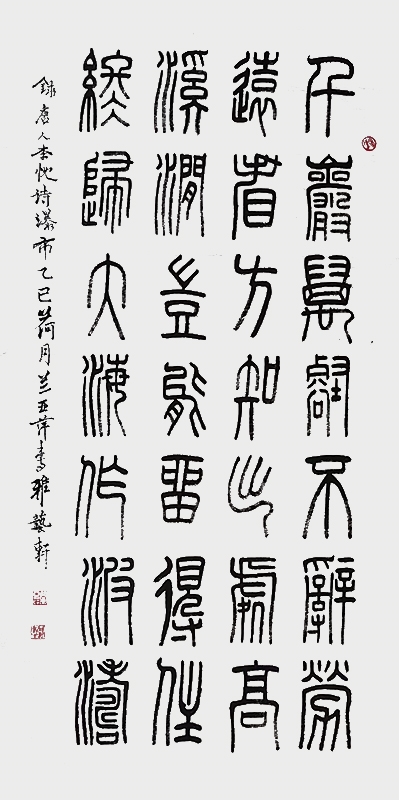 千巖萬壑不辭勞
遠看方知出處高
溪澗豈能留得住
終歸大海作波濤
錄唐人李忱詩瀑布乙巳荷月兰亚萍書雅藝軒